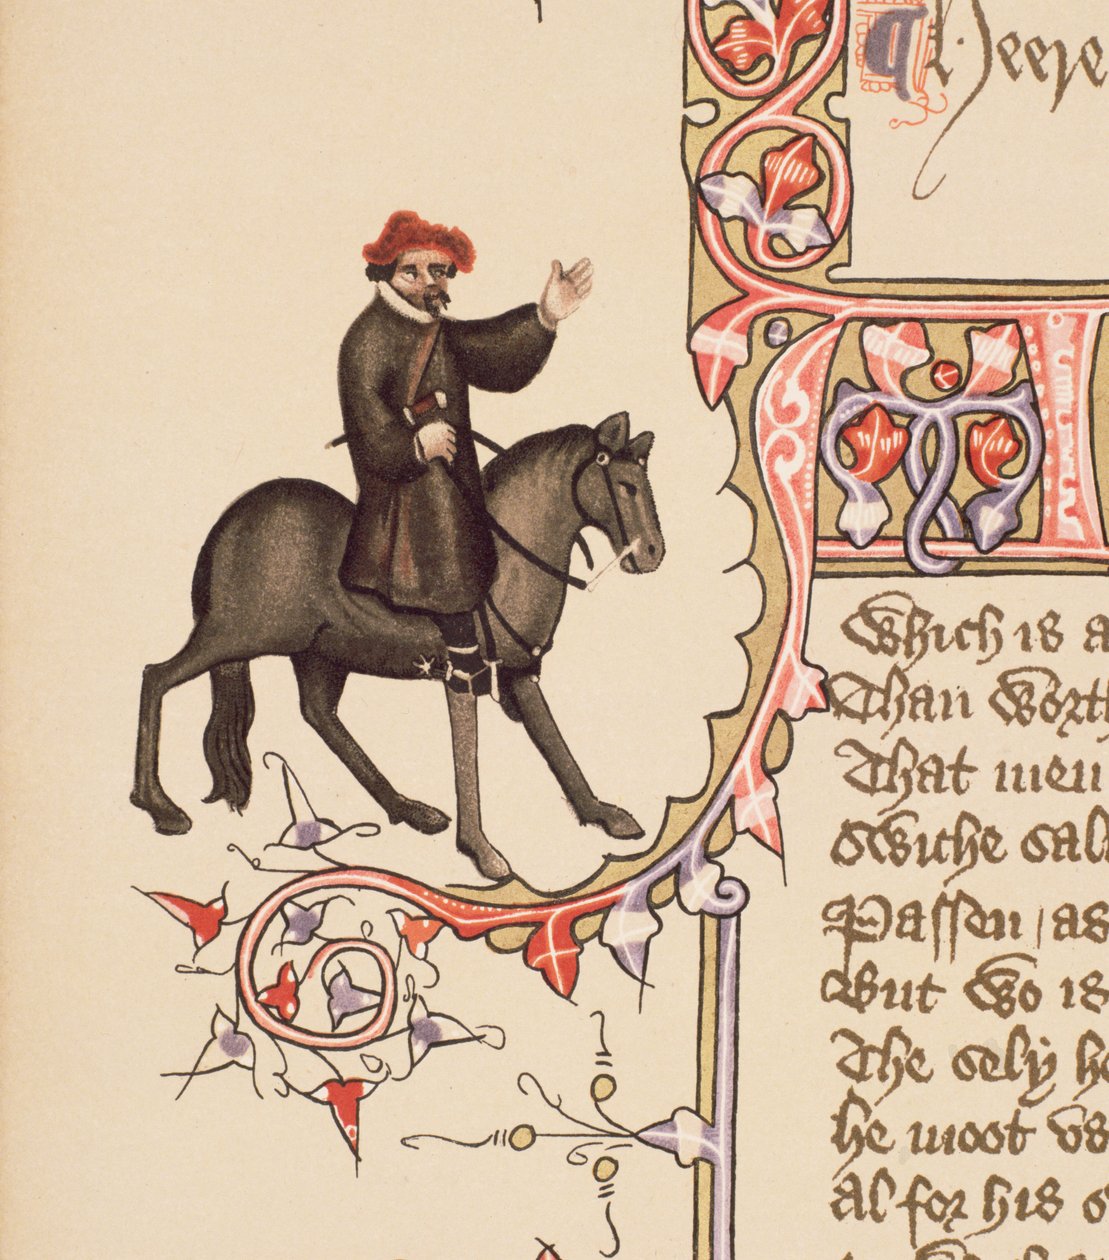 ¶ Heere
Which is a
Than worth
That men
Swiche salu
Passen / as
But wo is
The sely ho
he moot vs
al for his o